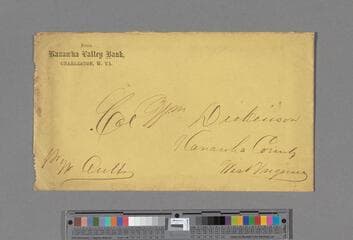 From
Kanawha Valley Bank,
CHARLESTON, W. VA.
Col Wm Dickinson
Kanawha County
West Virginia
Ault